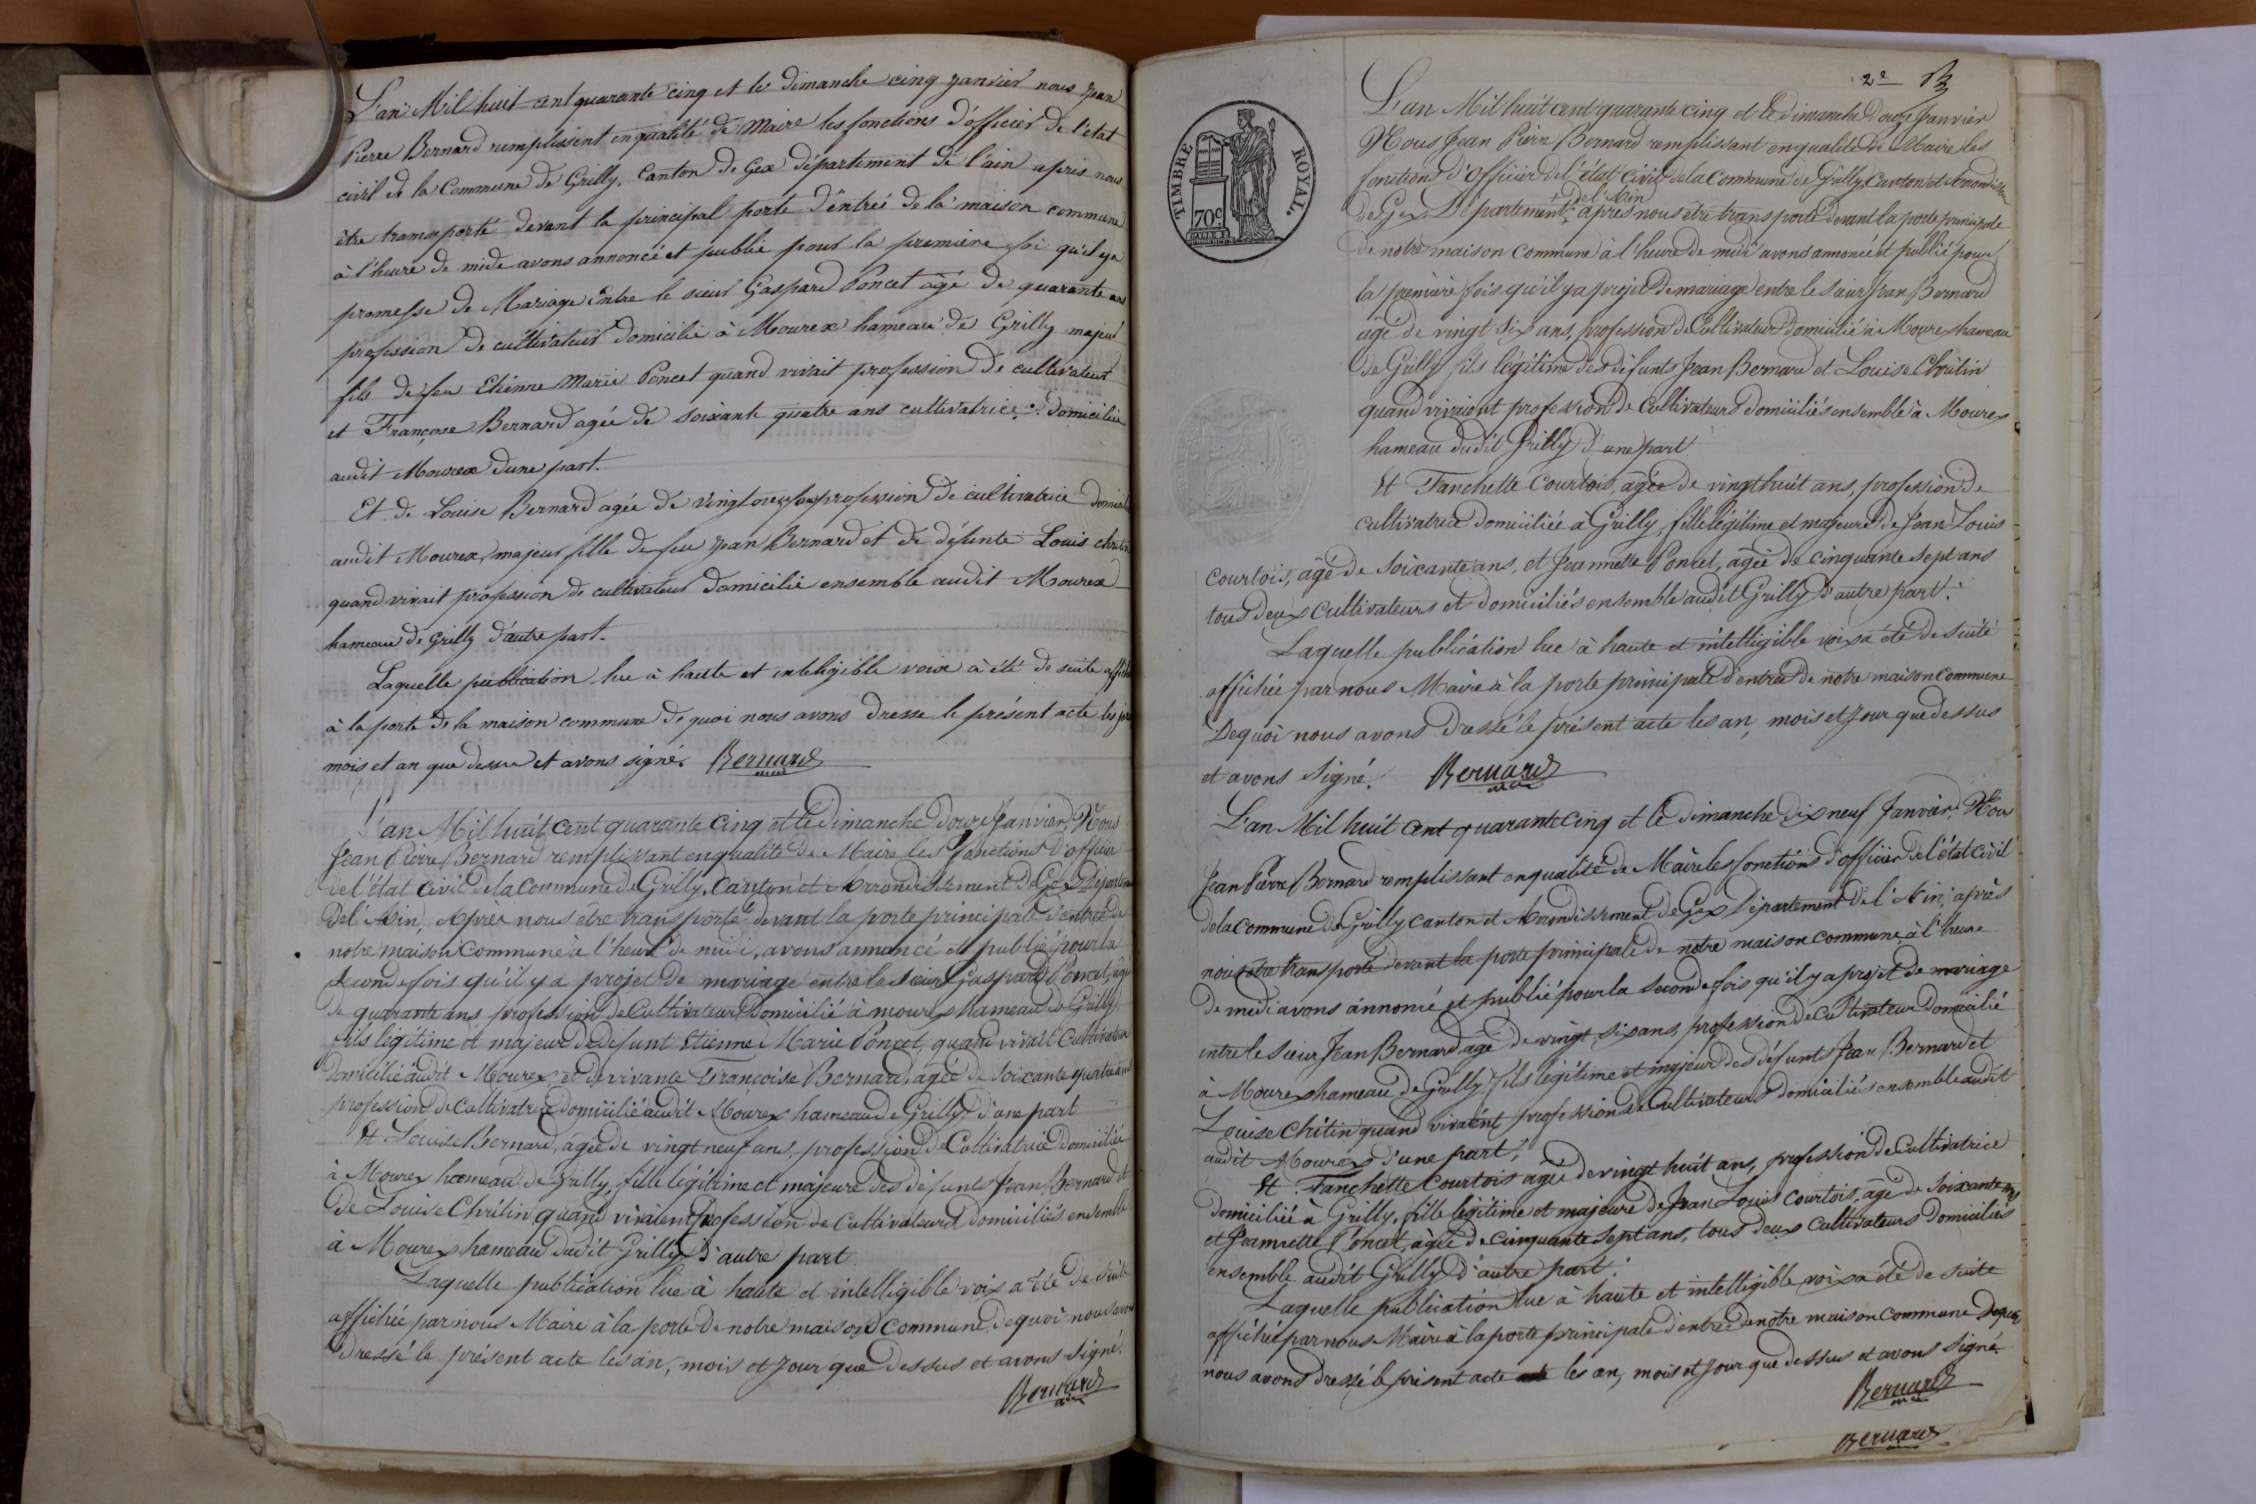 L'an Mil huit cent quarante cinq et le dimanche cinq janvier nous jean
Pierre Bernard remplissent en qualité de Maire les fonctions d'officier de l'état
civil de la Commune de Grilly, Canton de Gex département de l'ain apris nous
être transeporté devent la principal porte d'entrée de la maison commune
à l'heure de mide avons annoncé et publié pour la premiere foi qu'il ya
promesse de Mariage entre le sieur Gaspard Poncet âgé de quarante ans
profession de cultivateur domicilié à Mourex hameau de Grilly majeur
fils de feu Etienne Marie Poncet quand vivait profession de cultivateur
et Françoise Bernard agée de soixante quatre ans cultivatrice domiciliée
audit Mourex d'une part.
Et de Louise Bernard agée de vingt neuf ans profession de cultivatrice
audit Mourex, majeur fille de feu jean Bernard et de défunte Louis
quand vivait profession de cultivateur domicilié ensemble audit Mourex
hameau de Grilly d'autre part.
Laquelle publication lue à haute et inteligible voix à été de suite
à la porte de la maison commune de quoi nous avons dresse le présent acte les
mois et an que dessu et avons signé. Bernard
L'an Mil huit cent quarante cinq et le dimanche douze Janvier, Nous
Jean Pierre Bernard remplissant en qualité de Maire les fonctions d'officier
de l'état civil de la Commune de Grilly, Canton et Arrondissement de Gex Département
de l'Ain, Après nous être transporté devant la porte principale d'entrée de
notre maison commune à l'heure de midi, avons annoncé et publié pour la
seconde fois qu'il y a projet de mariage entre le sieur Gaspard Poncet, âgé
de quarante ans profession de Cultivateur domicilié à mourex hameau de Grilly
fils légitime et majeur de defunt Etienne Marie Poncet, quand vivait Cultivateur
domicilié audit Mourex et de vivante Françoise Bernard, agée de soixante quatre ans
profession de cultivatrice domicilié audit Mourex hameau de Grilly, d'une part
Et Louise Bernard, agée de vingt neuf ans, profession de Cultivatrice domiciliée
à Mourex hameau de Grilly, fille légitime et majeure des défunts Jean Bernard et
de Louise Chrétin quand vivaient profession de cultivateurs domiciliés ensemble
à Mourex hameau dudit Grilly d'autre part
Laquelle publication lue à haute et intelligible voix a été de suite
affichée par nous Maire à la porte de notre maison commune, de quoi nous avons
dressé le présent acte les an, mois et jour que dessus et avons signé.
Bernard
2e
TIMBRE ROYAL.
70c
L'an Mil huit cent quarante cinq et le dimanche douze Janvier
Nous Jean Pierre Bernard remplissant en qualité de Maire les
fonctions d'Officier de l'état civil de la Commune de Grilly, Canton et Arrondissem
de l'Ain
de Gex Département, après nous être transporté devant la porte principale
de notre maison commune à l'heure de midi avons annoncé et publié pour
la première fois qu'il y a projet de mariage entre le sieur Jean Bernard
âgé de vingt six ans, profession de Cultivateur domicilié à Mourex hameau
de Grilly fils légitime des défunts Jean Bernard et Louise Chrétin
quand vivaient profession de Cultivateurs domiciliés ensemble à Mourex
hameau dudit Grilly d'une part
Et Fanchette Courtois, agée de vingt huit ans, profession de
cultivatrice domiciliée à Grilly, fille légitime et majeure de Jean Louis
courtois, âgé de soixante ans, et Jeannette Poncet, agée de cinquante sept ans
tous deux Cultivateurs et domiciliés ensemble audit Grilly d'autre part.
Laquelle publication lue à haute et intelligible voix a été de suite
affichée par nous Maire à la porte principale d'entrée de notre maison commune
De quoi nous avons dressé le présent acte les an, mois et jour que dessus
et avons signé. Bernard
L'an Mil huit cent quarante cinq et le dimanche dix neuf Janvier, Nous
Jean Pierre Bernard remplissant en qualité de Maire les fonctions d'officier de l'état civil
de la Commune de Grilly canton et Arrondissement de Gex Département de l'Ain, après
nous être transporté devant la porte principale de notre maison commune, à l'heure
de midi avons annoncé et publié pour la seconde fois qu'il y a projet de mariage
entre le sieur Jean Bernard agé de vingt six ans, profession de Cultivateur domicilié
à Mourex hameau de Grilly, fils légitime et majeur des défunts Jean Bernard et
Louise Chrétin quand vivaient profession de Cultivateurs domiciliés ensemble audit
audit Mourex d'une part;
Et Fanchette Courtois agée de vingt huit ans, profession de Cultivatrice
domiciliée à Grilly, fille légitime et majeure de Jean Louis Courtois, âgé de soixante ans
et Jeannette Poncet, agée de cinquante sept ans, tous deux cultivateurs domiciliés
ensemble audit Grilly d'autre part.
Laquelle publication lue à haute et intelligible voix a été de suite
affichée par nous Maire à la porte principale d'entrée de notre maison commune De quoi
nous avons dressé le présent acte les an, mois et jour que dessus et avons signé
Bernard
Bernard